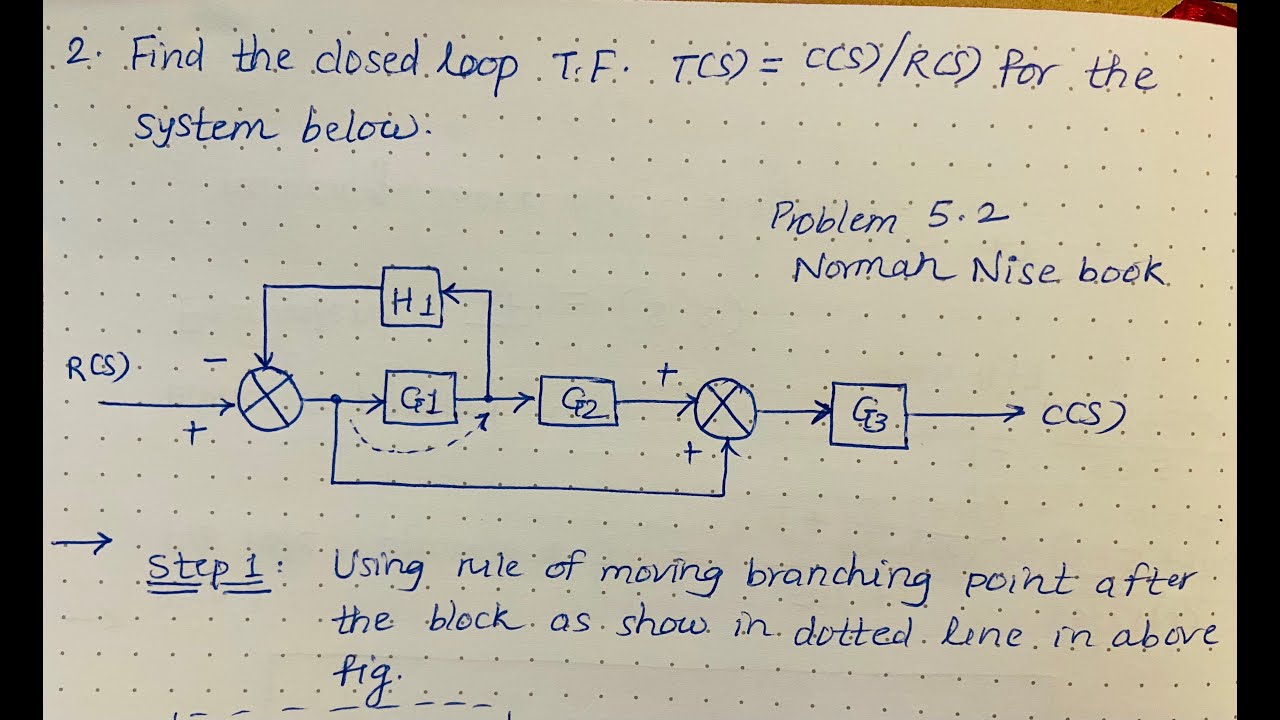 2. Find the closed loop T.F. T(S) = C(S)/R(S) for the
system below.
Problem 5.2
Norman Nise book
H1
R(S)
−
+
G1
G2
+
+
G3
C(S)
→ Step 1: Using rule of moving branching point after
the block as show in dotted line in above
fig.